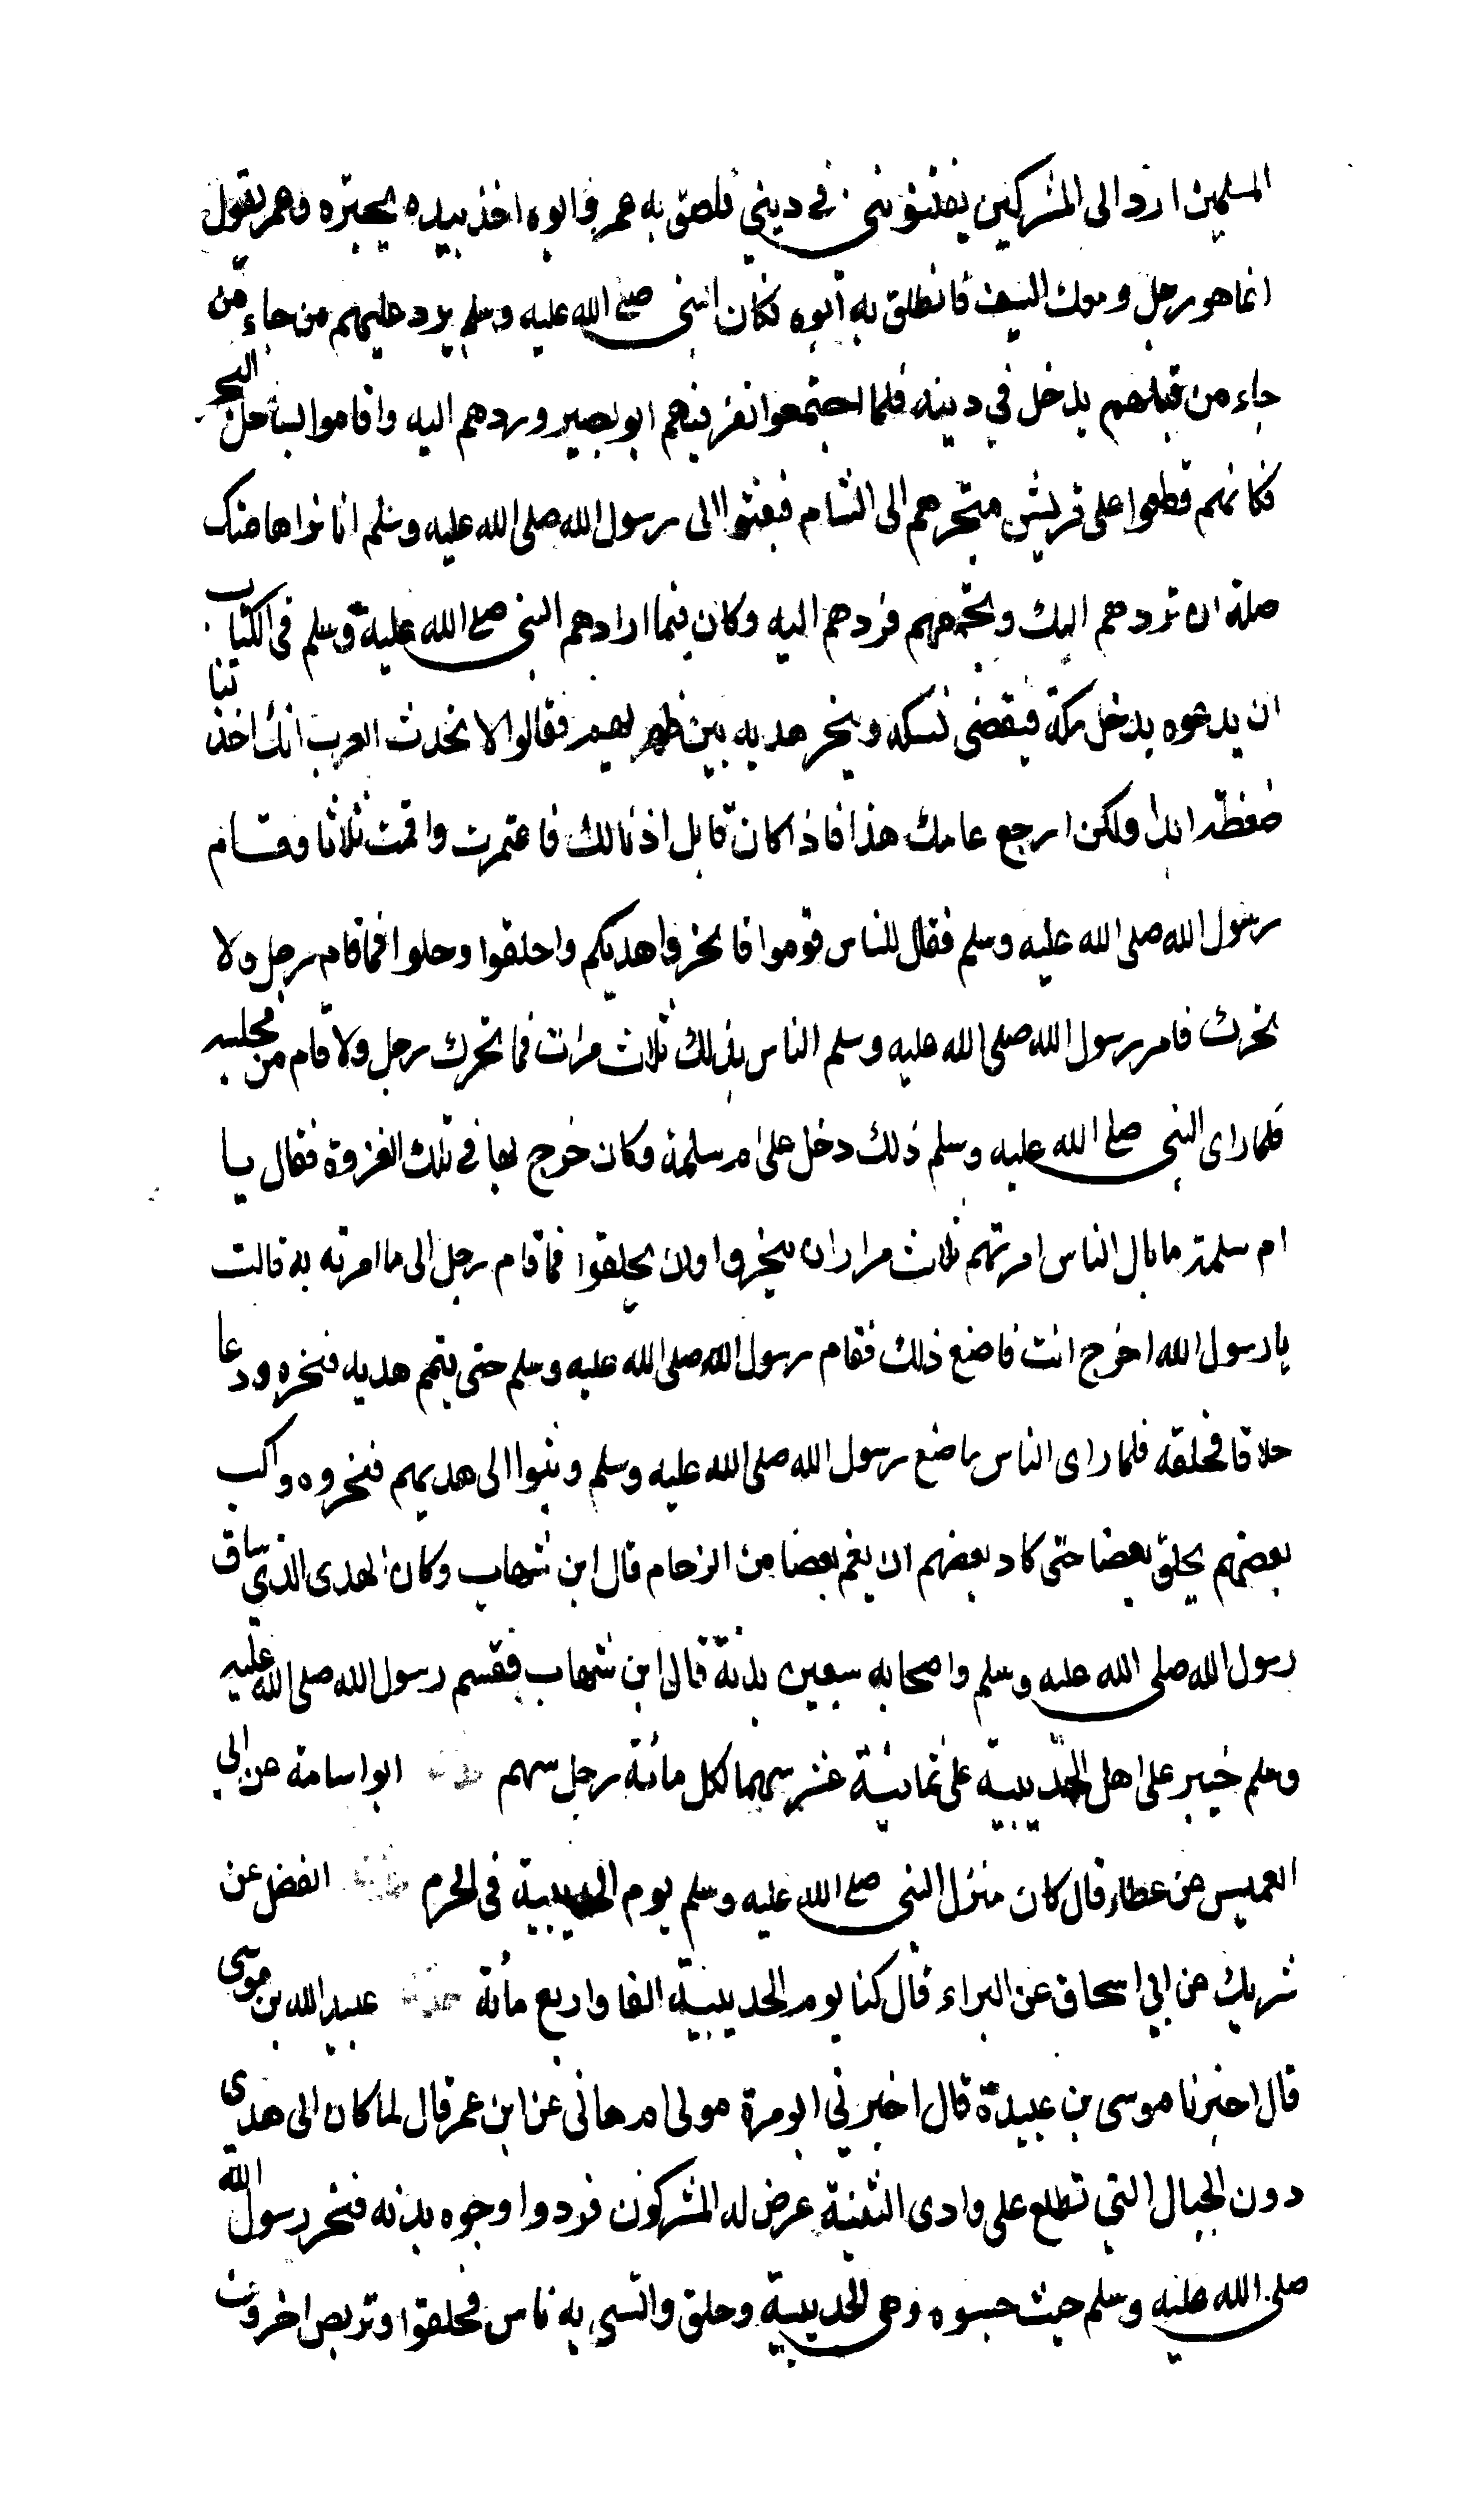 المسلمين ارد الى المشركين يفتنونني في ديني فلصق به عمر وابوه اخذ بيده يجتره وعمر يقول
انما هو رجل ومعك السيف فانطلق به ابوه فكان النبي صلى الله عليه وسلم يرد عليهم من جاء من
جاء من قبلهم يدخل في دينه فلما اجتمعوا نفر فيهم ابو بصير وردهم اليه واقاموا بساحل البحر
فكانهم قطعوا على قريش متجرهم الى الشام فبعثوا الى رسول الله صلى الله عليه وسلم انا نراها منك
صلة ان تردهم اليك وتجمعهم فردهم اليه وكان فيما ارادهم النبي صلى الله عليه وسلم في الكتاب
ان يدعوه يدخل مكة فيقضي نسكه وينحر هديه بين ظهريهم فقالوا لا تحدث العرب انك اخذتنا
ضغطة ابدا ولكن ارجع عامك هذا فاذا كان قابل اذنا لك فاعتمرت واقمت ثلاثا وقام
رسول الله صلى الله عليه وسلم فقال للناس قوموا فانحروا هديكم واحلقوا وحلوا فما قام رجل ولا
تحرك فامر رسول الله صلى الله عليه وسلم الناس بذلك ثلاث مرات فما تحرك رجل ولا قام من مجلسه
فلما راى النبي صلى الله عليه وسلم ذلك دخل على ام سلمة وكان خرج بها في تلك الغزوة فقال يا
ام سلمة ما بال الناس امرتهم ثلاث مرار ان ينحروا وان يحلقوا فما قام رجل الى ما امرته به قالت
يا رسول الله اخرج انت فاصنع ذلك فقام رسول الله صلى الله عليه وسلم حتى يتمم هديه فنحره ودعا
حلاقا فحلقه فلما راى الناس ما صنع رسول الله صلى الله عليه وسلم وثبوا الى هديهم فنحروه واكب
بعضهم يحلق بعضا حتى كاد بعضهم ان يغم بعضا من الزحام قال ابن شهاب وكان الهدى الذي ساق
رسول الله صلى الله عليه وسلم واصحابه سبعين بدنة قال ابن شهاب فقسم رسول الله صلى الله عليه
وسلم خيبر على اهل الحديبية على ثمانية عشر سهما لكل مائة رجل سهم ابو اسامة عن ابي
العميس عن عطاء قال كان منزل النبي صلى الله عليه وسلم يوم الحديبية في الحرم الفضل عن
شريك عن ابي اسحاق عن البراء قال كنا يوم الحديبية الفا واربع مائة عبيد الله بن موسى
قال اخبرنا موسى بن عبيدة قال اخبرني ابو مرة مولى ام هاني عن ابن عمر قال لما كان الى هدى
دون الجبال التي تطلع على وادى الثنية عرض له المشركون فردوا وجوه بدنه فنحر رسول الله
صلى الله عليه وسلم حيث حبسوه وهي الحديبية وحلق واتسى به ناس فحلقوا وتربص اخرون